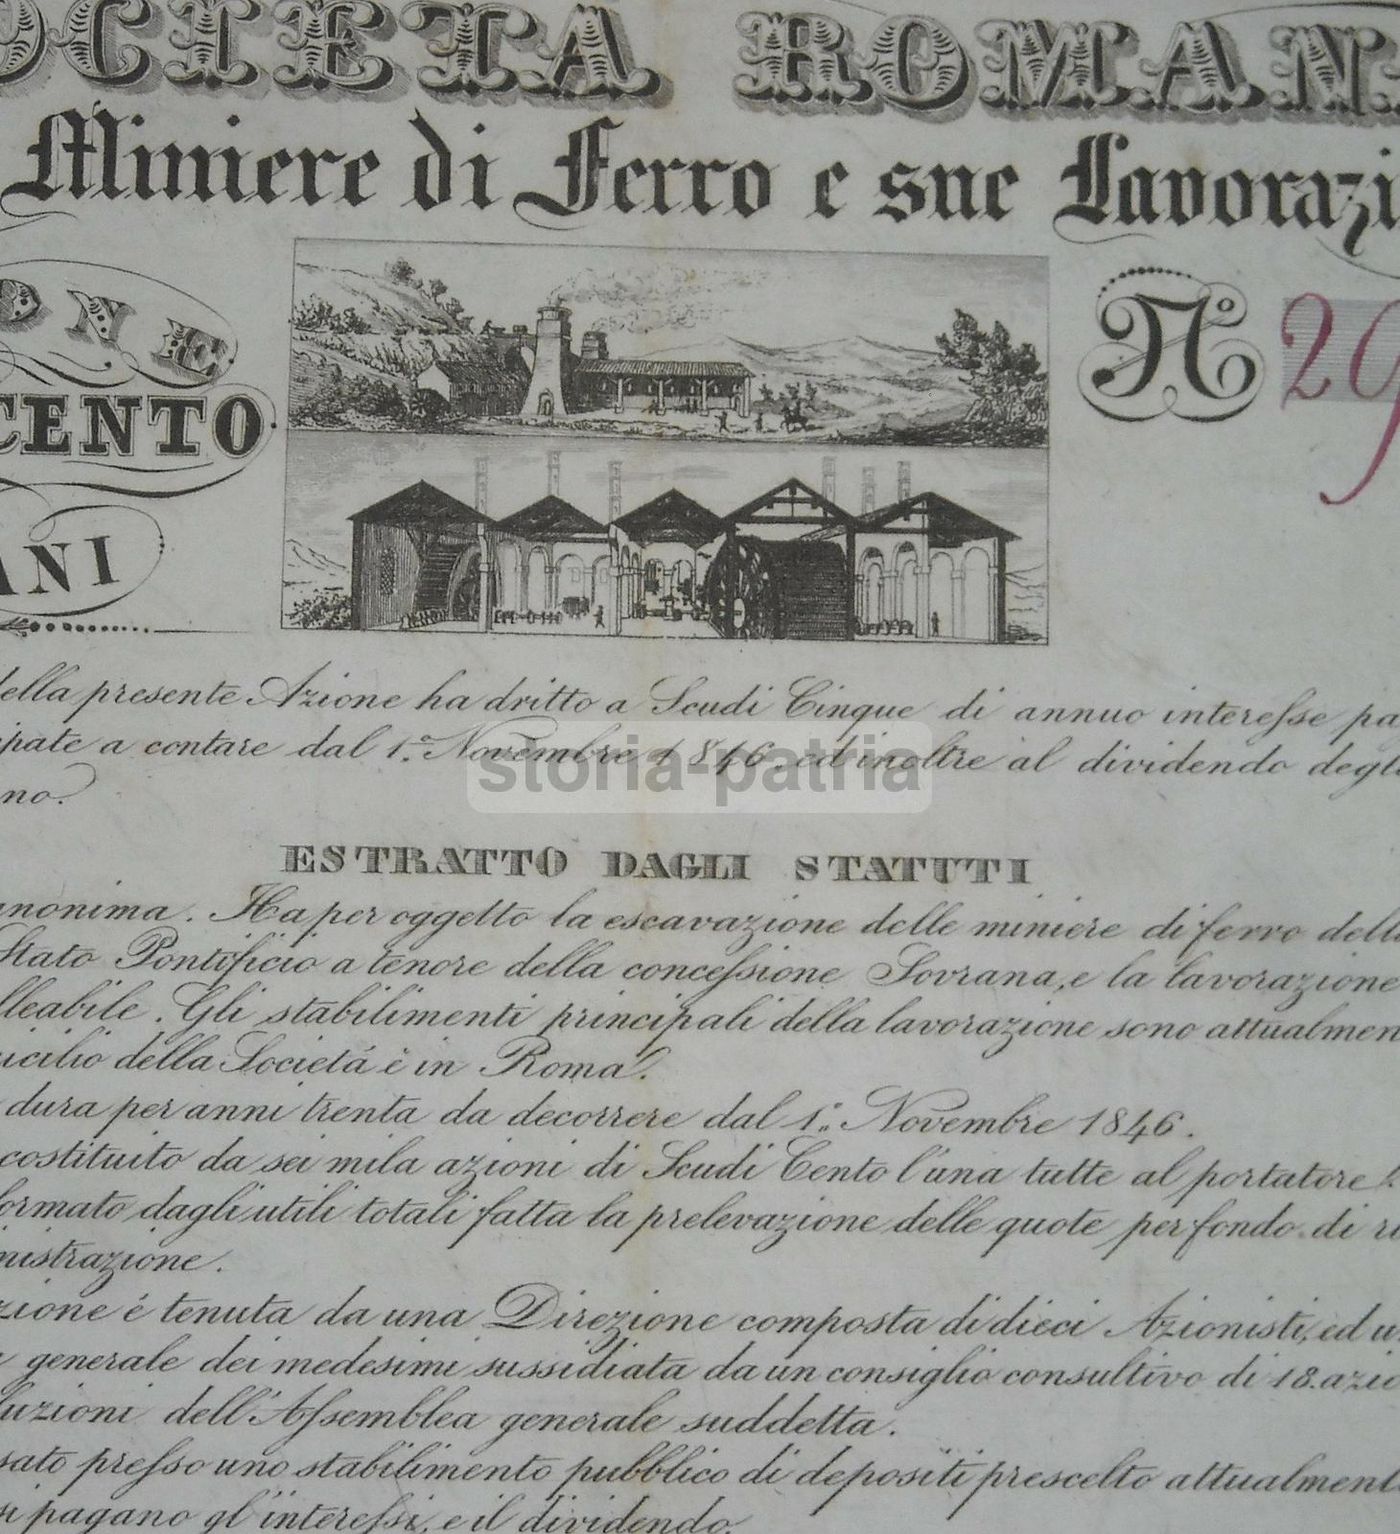 OCIETA ROMAN
Miniere di Ferro e sue Lavorazi
ONE
CENTO
ANI
N° 29
della presente Azione ha dritto a Scudi Cinque di annuo interesse pa
cipate a contare dal 1.° Novembre 1846. ed inoltre al dividendo degl
no.
storia-patria
ESTRATTO DAGLI STATUTI
anonima. Ha per oggetto la escavazione delle miniere di ferro dell
Stato Pontificio a tenore della concessione Sovrana, e la lavorazione
lleabile. Gli stabilimenti principali della lavorazione sono attualmen
icilio della Società è in Roma.
dura per anni trenta da decorrere dal 1.° Novembre 1846.
costituito da sei mila azioni di Scudi Cento l'una tutte al portatore
formato dagli utili totali fatta la prelevazione delle quote per fondo di ri
nistrazione.
zione é tenuta da una Direzione composta di dieci Azionisti, ed u
generale dei medesimi sussidiata da un consiglio consultivo di 18. azio
luzioni dell'Assemblea generale suddetta.
sato presso uno stabilimento pubblico di depositi prescelto attualment
si pagano gl'interessi, e il dividendo.